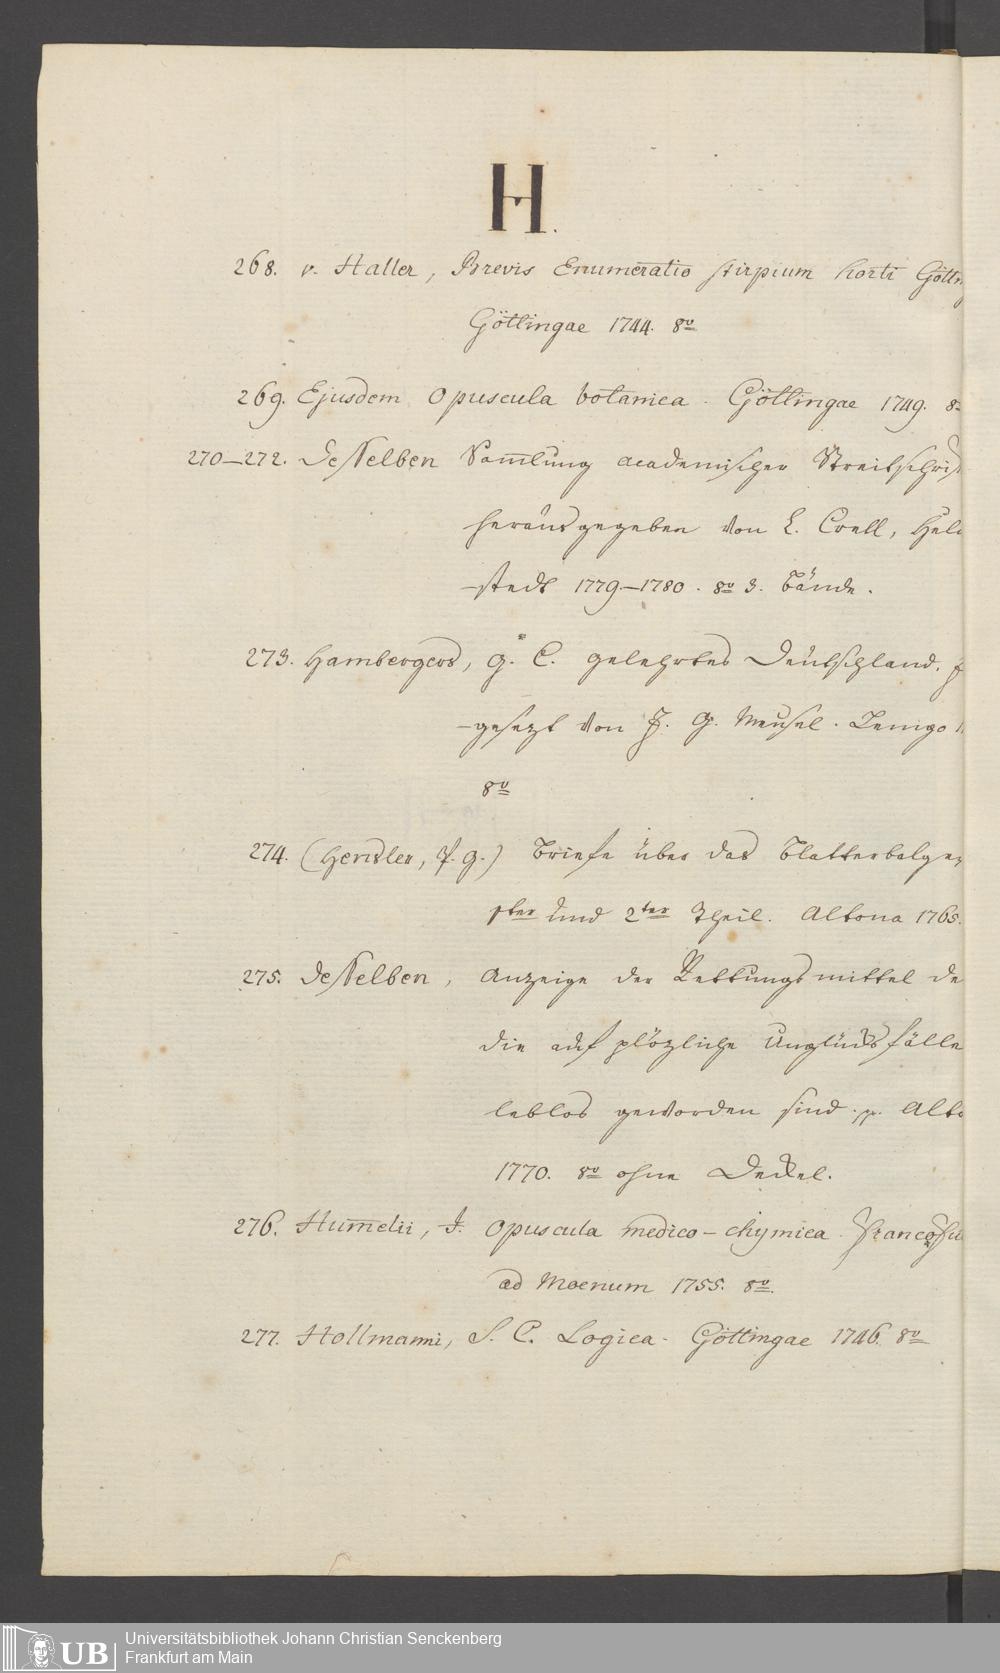 H.
268. v. Haller, Brevis Enumeratio stirpium horti Götting
Göttingae 1744. 8º
269. Ejusdem Opuscula botanica. Göttingae 1749. 8º
270–272. Desselben Sam̄lung academischer Streitschrif
herausgegeben von L. Crell, Helm
-stedt 1779–1780. 8º 3. Bände.
273. Hambergers, G. C. gelehrtes Deutschland.
-gesezt von J. G. Meusel. Lemgo
8º
274. (Hensler, P. G.) Briefe über das Blatterbelzen
1ster und 2ter Theil. Altona 1765.
275. Desselben, Anzeige der Rettungsmittel de
die auf plözliche Unglücksfälle
leblos geworden sind. pp. Alto
1770. 8º ohne Deckel.
276. Hum̄elii, J. Opuscula medico-chymica. Francofu
ad Moenum 1755. 8º.
277. Hollmanni, S. C. Logica. Göttingae 1746. 8º
UB Universitätsbibliothek Johann Christian Senckenberg
Frankfurt am Main